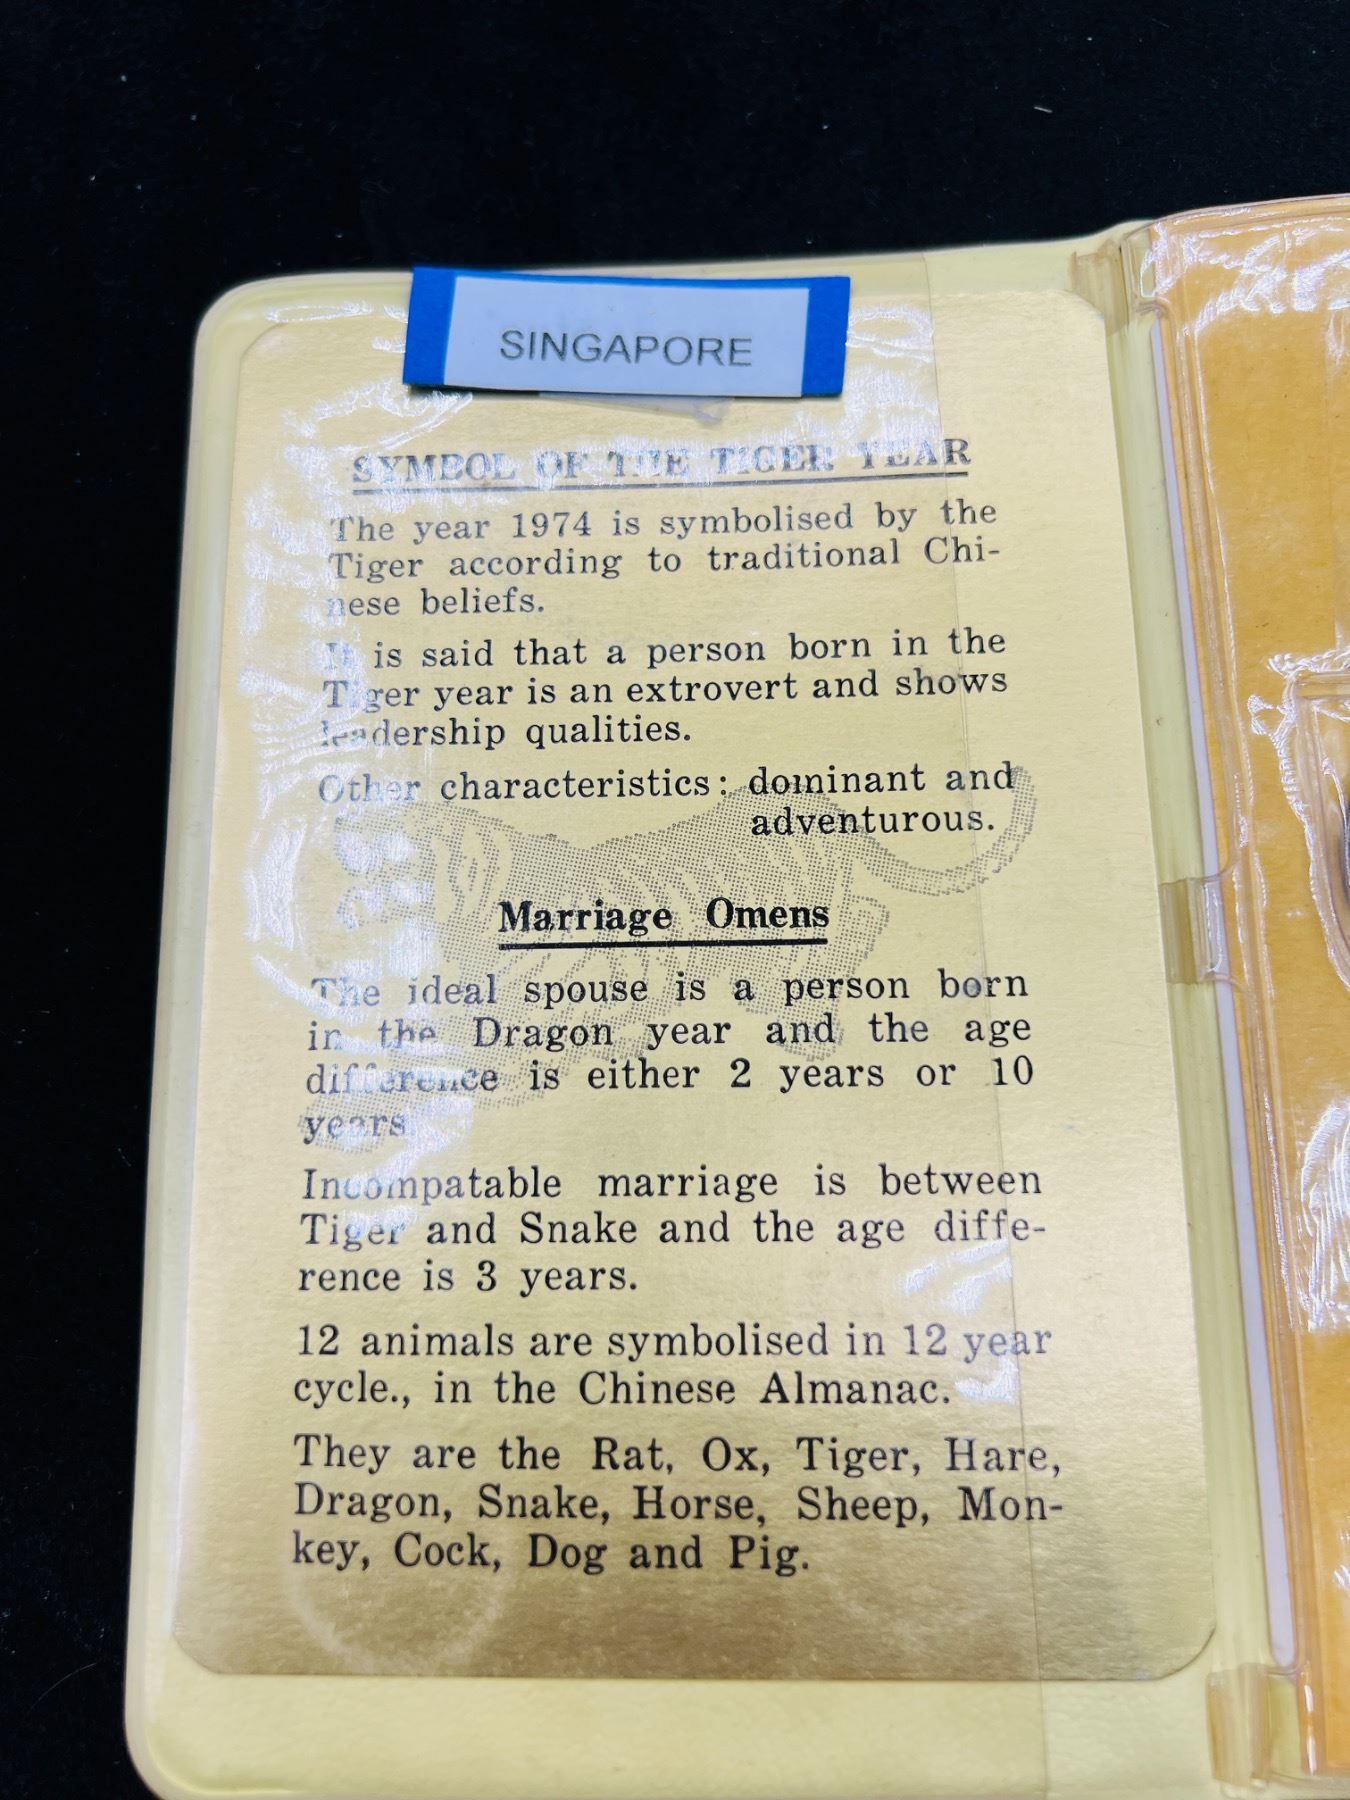 SINGAPORE
SYMBOL OF THE TIGER YEAR
The year 1974 is symbolised by the
Tiger according to traditional Chi-
nese beliefs.
It is said that a person born in the
Tiger year is an extrovert and shows
leadership qualities.
Other characteristics: dominant and
adventurous.
Marriage Omens
The ideal spouse is a person born
in the Dragon year and the age
difference is either 2 years or 10
years.
Incompatable marriage is between
Tiger and Snake and the age diffe-
rence is 3 years.
12 animals are symbolised in 12 year
cycle., in the Chinese Almanac.
They are the Rat, Ox, Tiger, Hare,
Dragon, Snake, Horse, Sheep, Mon-
key, Cock, Dog and Pig.